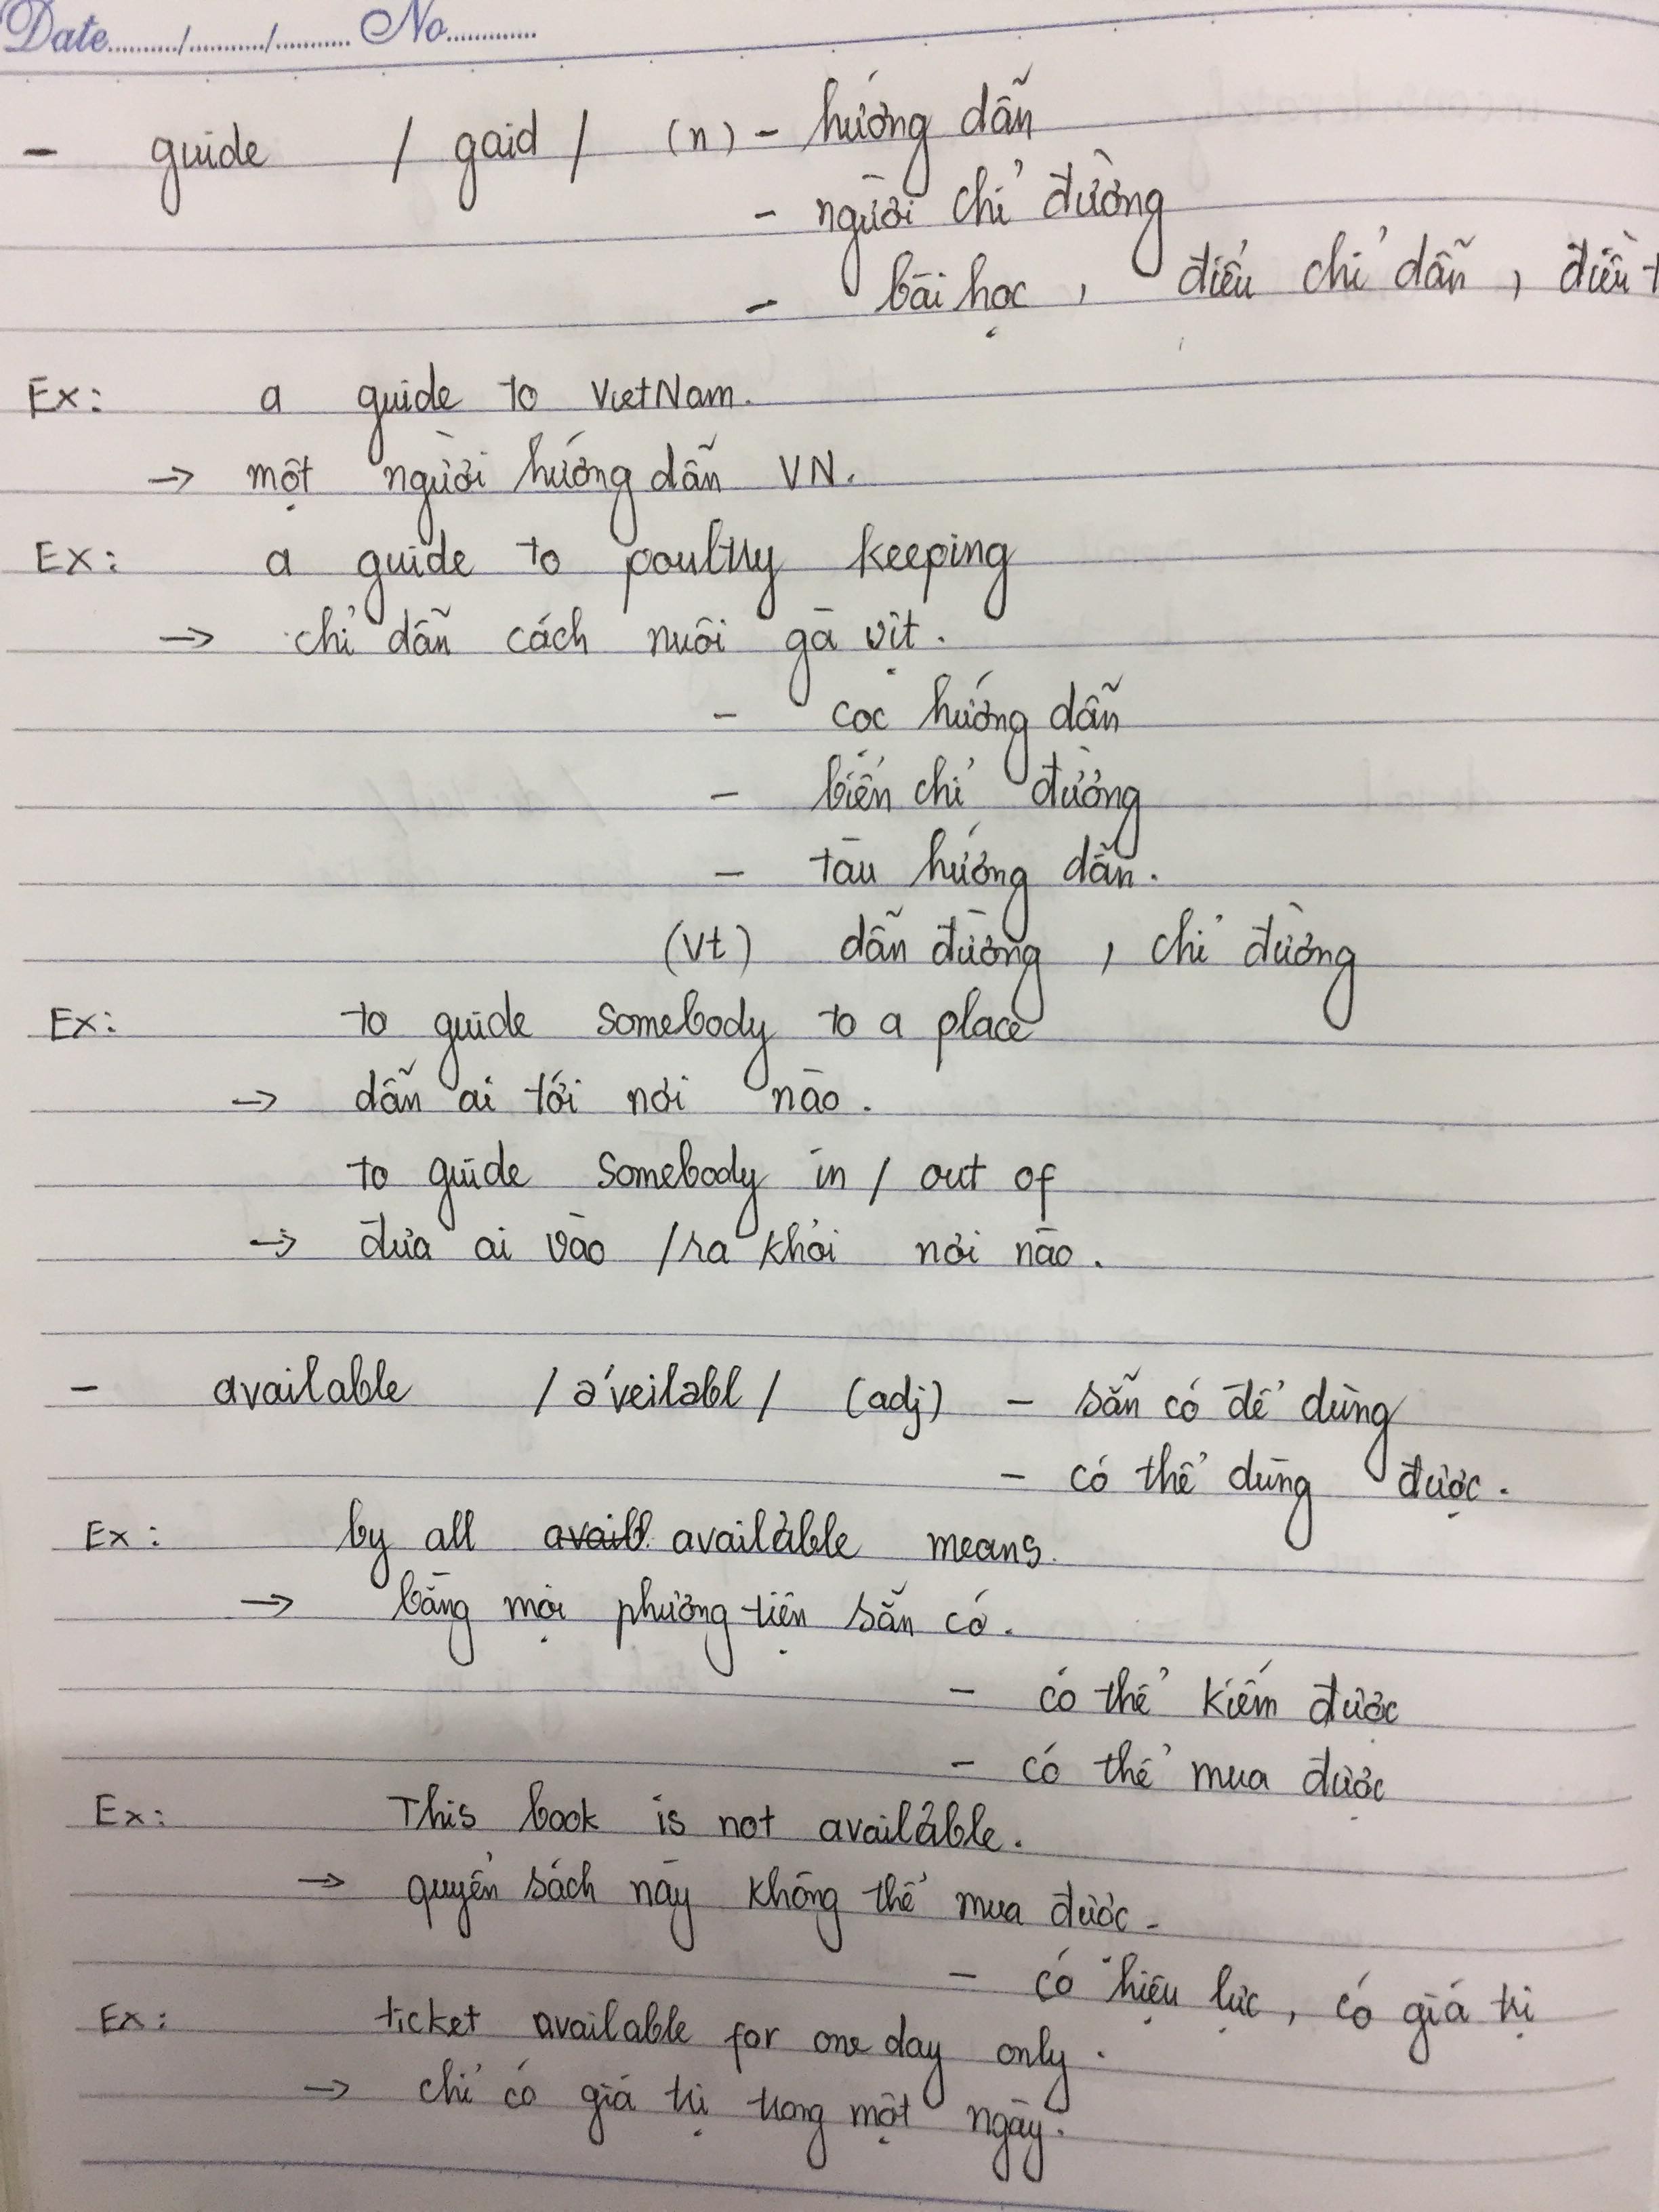 Date........../.........../........... No.............
- guide / gaid / (n) - hướng dẫn
- người chỉ đường
- bài học, điều chỉ dẫn, điều
Ex: a guide to VietNam.
→ một người hướng dẫn VN.
Ex: a guide to poultry keeping
→ chỉ dẫn cách nuôi gà vịt.
- cọc hướng dẫn
- biển chỉ đường
- tàu hướng dẫn.
(vt) dẫn đường, chỉ đường
Ex: to guide somebody to a place
→ dẫn ai tới nơi nào.
to guide somebody in / out of
→ đưa ai vào / ra khỏi nơi nào.
- available / ə'veiləbl / (adj) - sẵn có để dùng
- có thể dùng được.
Ex: by all availb. available means.
→ bằng mọi phương tiện sẵn có.
- có thể kiếm được
- có thể mua được
Ex: This book is not available.
→ quyển sách này không thể mua được.
- có hiệu lực, có giá trị
Ex: ticket available for one day only.
→ chỉ có giá trị trong một ngày.